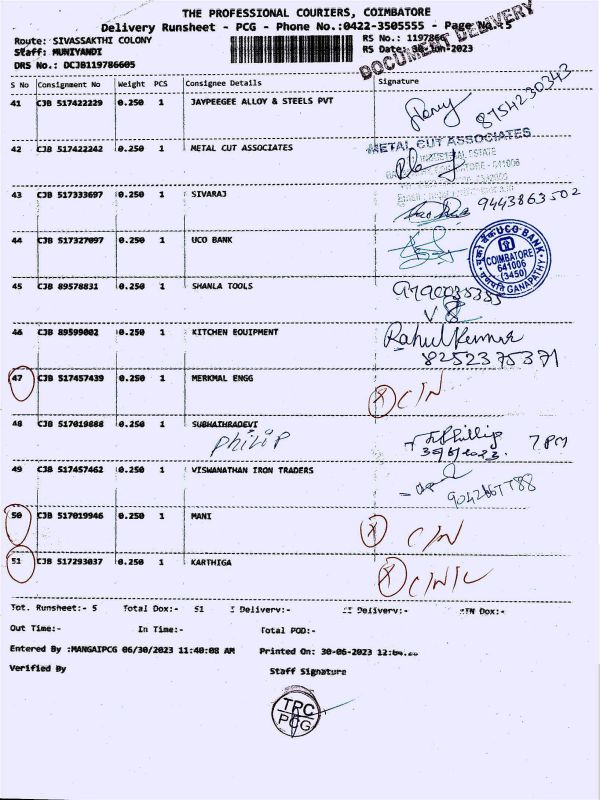 THE PROFESSIONAL COURIERS, COIMBATORE
Delivery Runsheet - PCG - Phone No.:0422-3505555 - Page No.:5
Route: SIVASSAKTHI COLONY
RS No.: 1197866
Staff: MUNIYANDI
RS Date: 30-Jun-2023
DRS No.: DCJB119786605
DOCUMENT DELIVERY
S No Consignment No Weight PCS Consignee Details Signature
41 CJB 517422229 0.250 1 JAYPEEGEE ALLOY & STEELS PVT
8754230343
42 CJB 517422242 0.250 1 METAL CUT ASSOCIATES
METAL CUT ASSOCIATES
INDUSTRIAL ESTATE
43 CJB 517333697 0.250 1 SIVARAJ
9443863502
44 CJB 517327097 0.250 1 UCO BANK
UCO BANK
COIMBATORE
641006
(3450)
GANAPATHY
45 CJB 89578831 0.250 1 SHANLA TOOLS
46 CJB 89599002 0.250 1 KITCHEN EQUIPMENT Rahul Kumar
8252375371
47 CJB 517457439 0.250 1 MERKMAL ENGG
X C/N
48 CJB 517019888 0.250 1 SUBHATHRADEVI
Philip
7 PM
49 CJB 517457462 0.250 1 VISWANATHAN IRON TRADERS
50 CJB 517019946 0.250 1 MANI
X C/N
51 CJB 517293037 0.250 1 KARTHIGA
X
Tot. Runsheet:- 5 Total Dox:- 51 Delivery:- Delivery:- Dox:-
Out Time:- In Time:- Total POD:-
Entered By :MANGAIPCG 06/30/2023 11:40:08 AM Printed On: 30-06-2023
Verified By Staff Signature
TPC
PCG